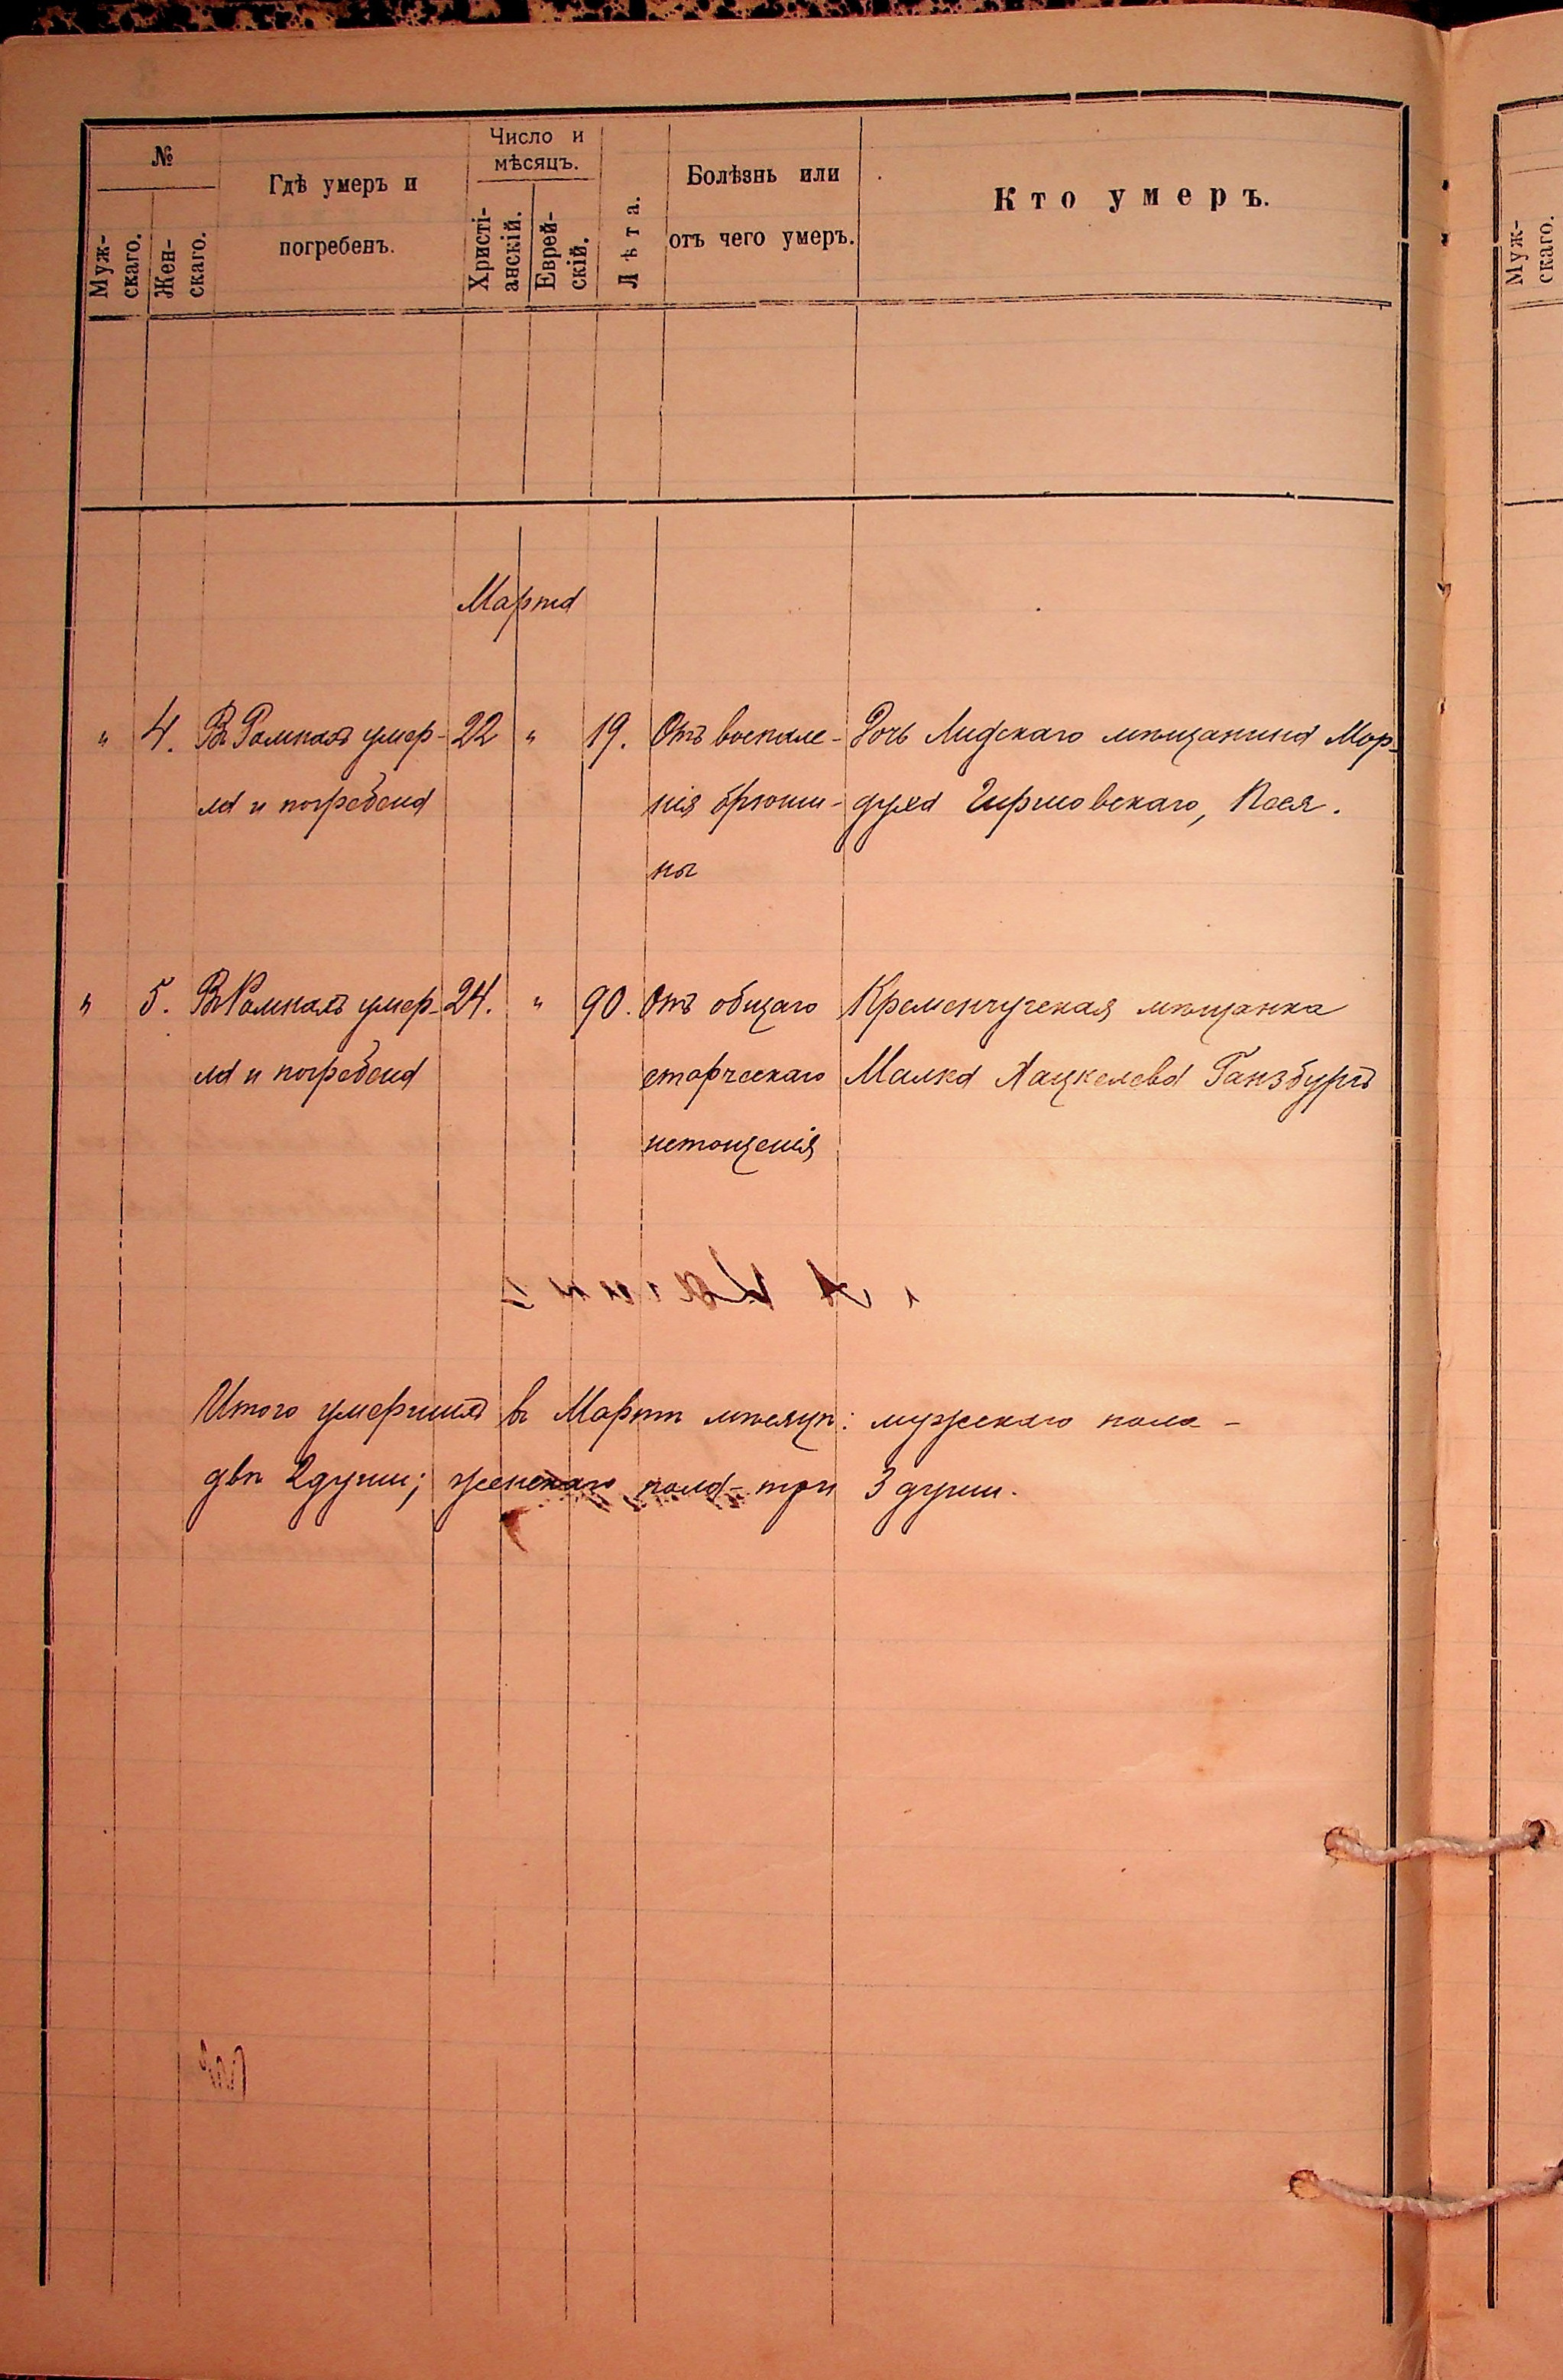 №
Муж-
скаго.
Жен-
скаго.
Гдѣ умеръ и
погребенъ.
Число и
мѣсяцъ.
Христі-
анскій.
Еврей-
скій.
Лѣта.
Болѣзнь или
отъ чего умеръ.
Кто умеръ.
Муж-
скаго.
Марта
" 4. Въ Ромнахъ умер- 22 " 19. Отъ воспале- Дочь Лидскаго мѣщанина Мор-
ла и погребена нія брюши- духа Гиршовскаго, Пося.
ны
" 5. Въ Ромнахъ умер- 24. " 90. Отъ общаго Кременчугская мѣщанка
ла и погребена старческаго Малка Хацкелева Ганзбургъ
истощенія
Итого умершихъ въ Мартѣ мѣсяцѣ: мужескаго пола -
двѣ 2 души; женскаго пола - три 3 души.